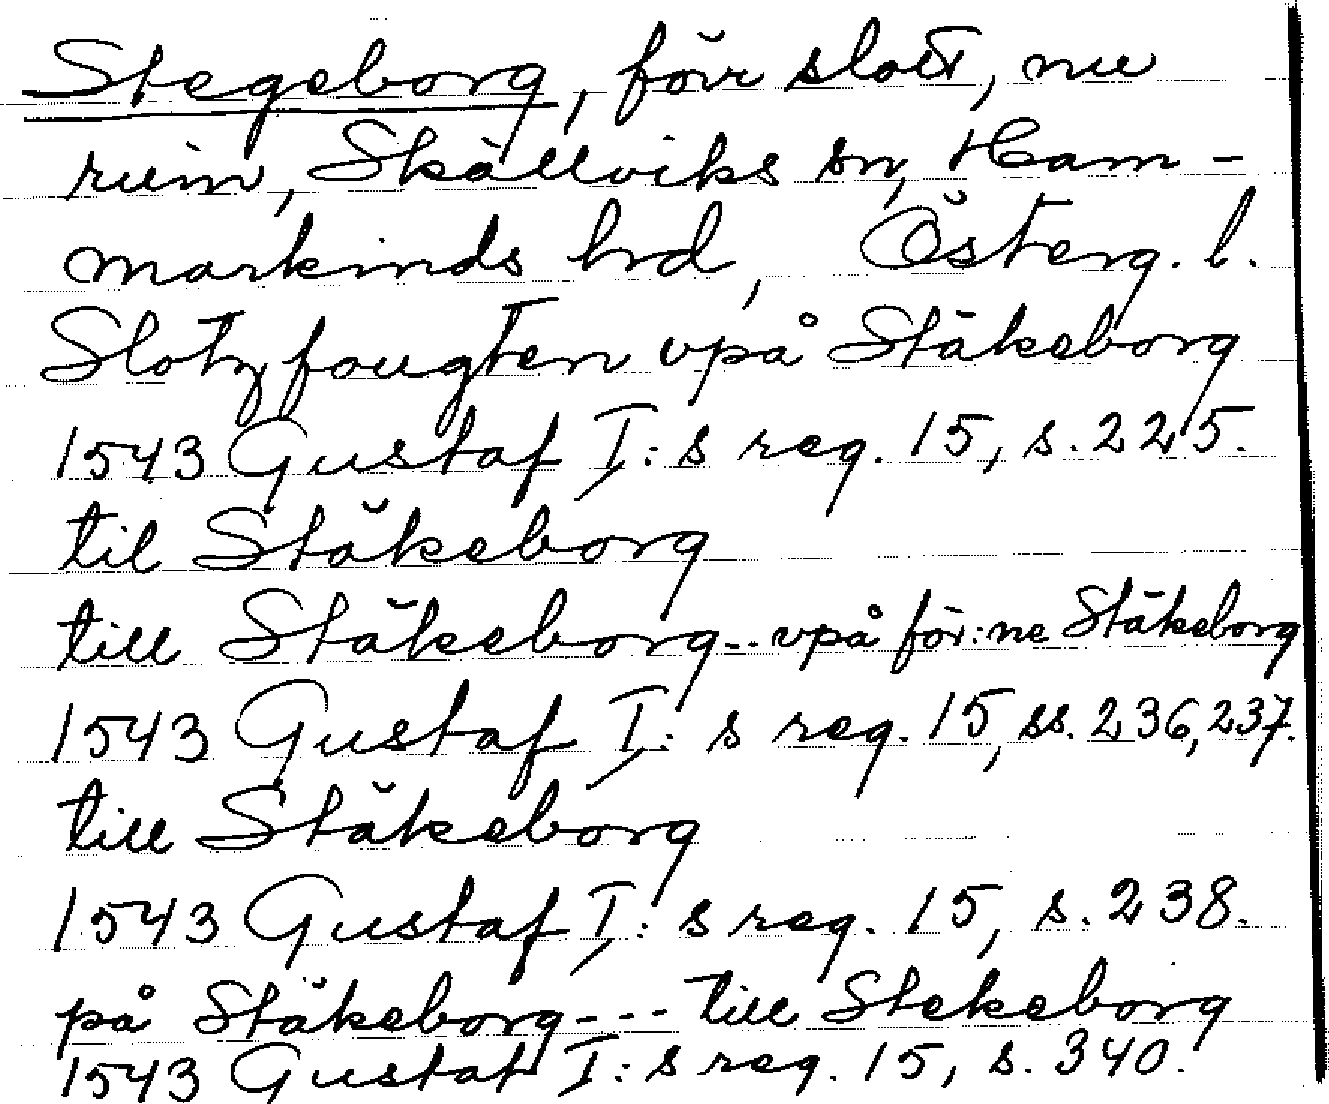 Stegeborg, förr slott, nu
ruin, Skällviks sn, Ham-
markinds hrd, Österg. l.
Slotzfougten vpå Stäkeborg
1543 Gustaf I:s reg. 15, s. 225.
til Stäkeborg
till Stäkeborg-- vpå för:ne Stäkeborg
1543 Gustaf I:s reg. 15, ss. 236, 237.
till Stäkeborg
1543 Gustaf I:s reg. 15, s. 238.
på Stäkeborg--- till Stekeborg
1543 Gustaf I:s reg. 15, s. 340.